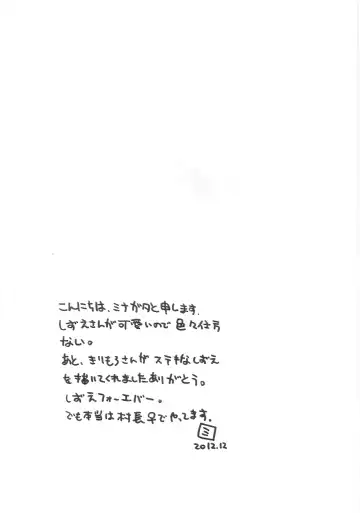 こんにちは、ミナガタと申します。
しずえさんが可愛いので色々仕方
ない。
あと、きりもろさんが ステキなしずえ
を描いてくれましたありがとう。
しずえフォーエバー。
でも本当は村長♀でやってます。
ミ
2012.12